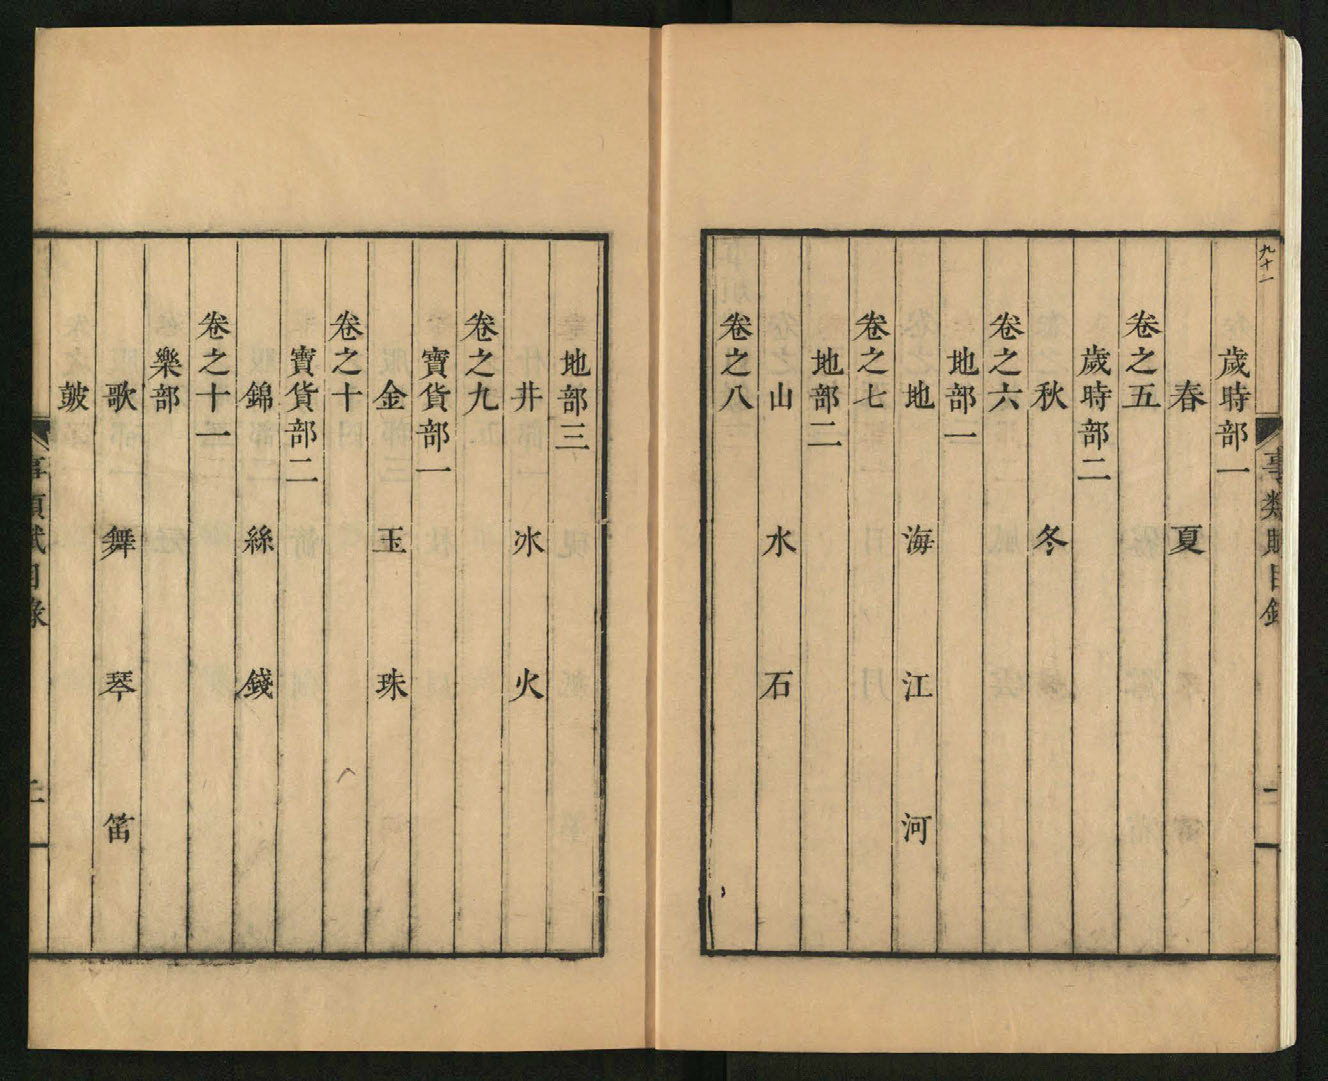 九十一
事類賦目錄
二
歲時部一
春 夏
卷之五
歲時部二
秋 冬
卷之六
地部一
地 海 江 河
卷之七
地部二
山 水 石
卷之八
地部三
井 冰 火
卷之九
寶貨部一
金 玉 珠
卷之十
寶貨部二
錦 絲 錢
卷之十一
樂部
歌 舞 琴 笛
皷
事類賦目錄
二